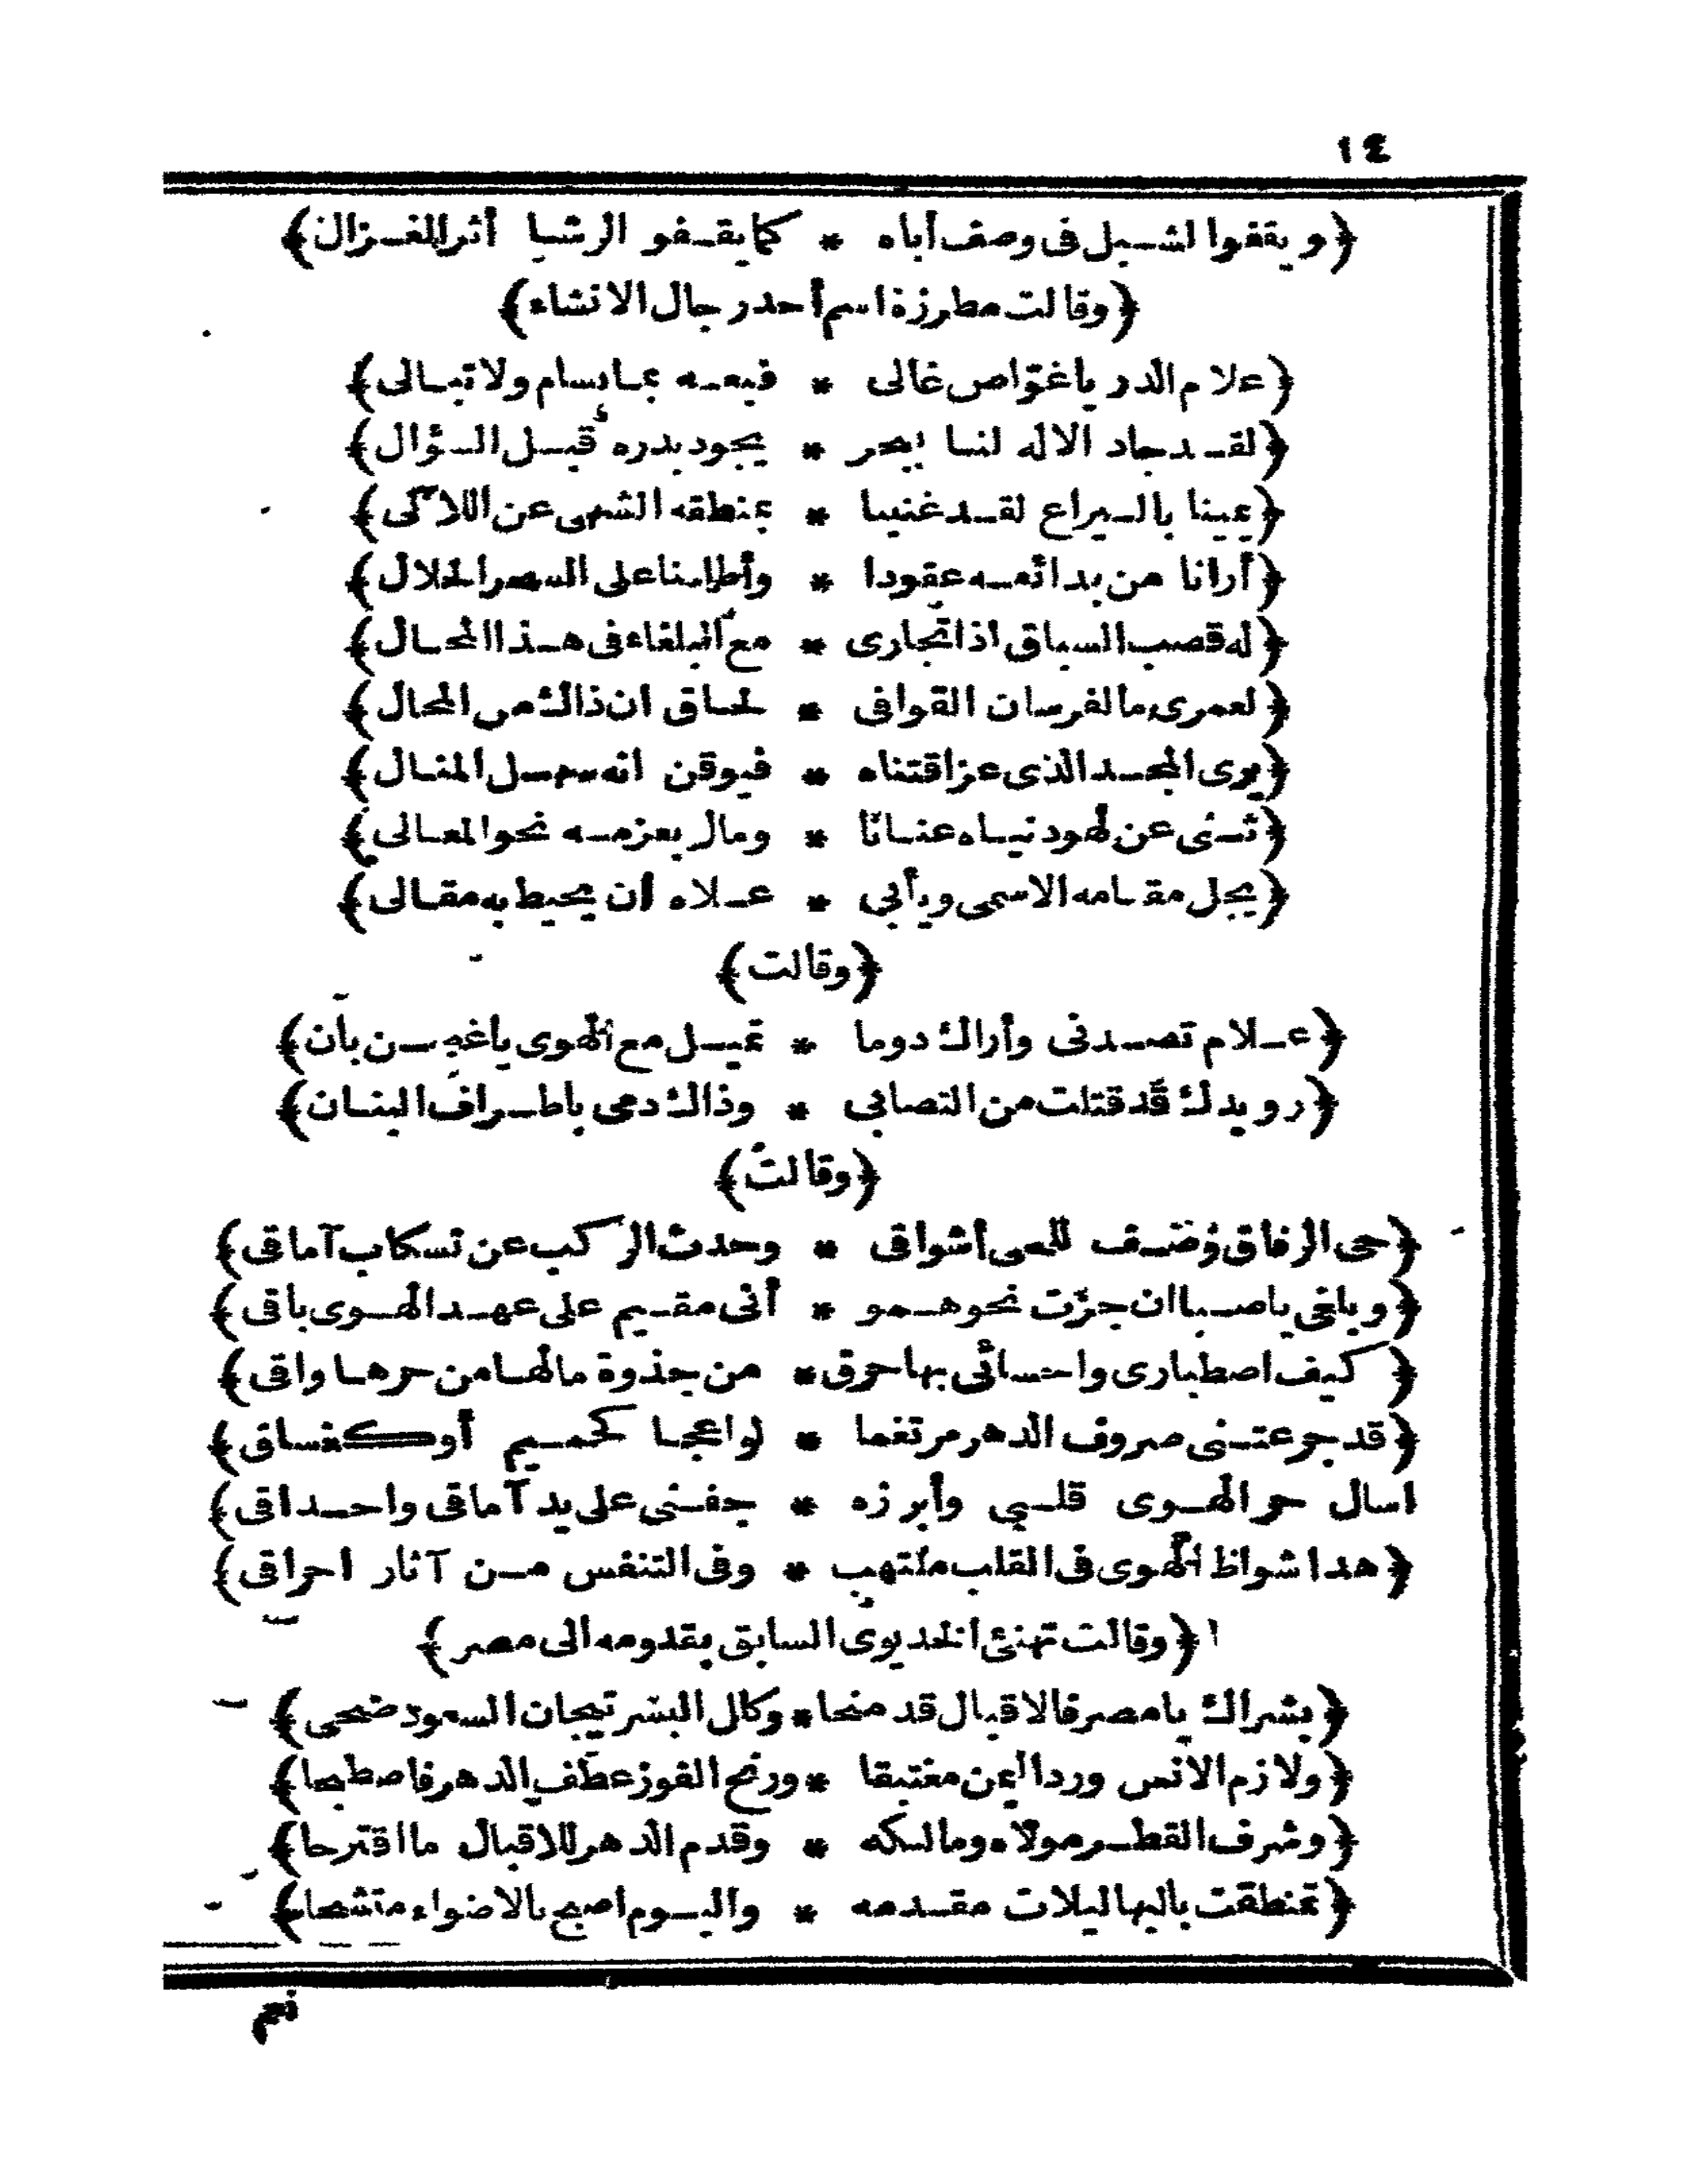 ١٤
﴿ويقفوا لشبل فى وصف أباه * كما يقفو الرشا أثر الغزال﴾
﴿وقالت مطرزة اسم أحد رجال الانشاء﴾
﴿علام الدر ياغوّاص غالى * فبعه بما يسام ولا تبالى﴾
﴿لقد جاد الاله لنا ببحر * يجود بدره قبل السؤال﴾
﴿يمينا باليراع لقد غنينا * بمنطقه الشهى عن اللآلى﴾
﴿أرانا من بدائعه عقودا * وأطلعنا على السحر الحلال﴾
﴿له قصب السباق اذا تجارى * مع البلغاء فى هذا المجال﴾
﴿لعمرى ما لفرسان القوافى * لحاق ان ذاك من المحال﴾
﴿يرى المجد الذى عز اقتناه * فيوقن انه سهل المنال﴾
﴿ثنى عن لهو دنياه عنانا * ومال بعزمه نحو المعالى﴾
﴿يجل مقامه الاسمى ويأبى * علاه أن يحيط به مقالى﴾
﴿وقالت﴾
﴿علام تصدنى وأراك دوما * تميل مع الهوى ياغصن بان﴾
﴿رويدك قد قتلت من التصابى * وذاك دمى باطراف البنان﴾
﴿وقالت﴾
﴿حى الرفاق وصف للحى أشواقى * وحدث الركب عن تسكاب آماقى﴾
﴿وبلغى ياصبا ان جزت نحوهمو * أنى مقيم على عهد الهوى باقى﴾
﴿كيف اصطبارى واحشائى بها حرق * من جذوة مالها من حرها واقى﴾
﴿قد جرعتنى صروف الدهر مرتغما * لواعجا كحميم أوكغساق﴾
اسال حر الهوى قلبى وأبرزه * جفنى على يد آماقى واحداقى﴾
﴿هذا شواظ الهوى فى القلب ملتهب * وفى التنفس من آثار احراقى﴾
﴿وقالت تهنئ الخديوى السابق بقدومه الى مصر﴾
﴿بشراك يامصر فالاقبال قد منحا * وكال البشر تيجان السعود ضحى﴾
﴿ولازم الانس ورد اليمن مغتبقا * ورنح الفوز عطف الدهر فاصطبحا﴾
﴿وشرف القطر مولاه ومالكه * وقدم الدهر للاقبال ما اقترحا﴾
﴿تمنطقت بالبها ليلات مقدمه * واليوم اصبح بالاضواء متشحا﴾
نعم